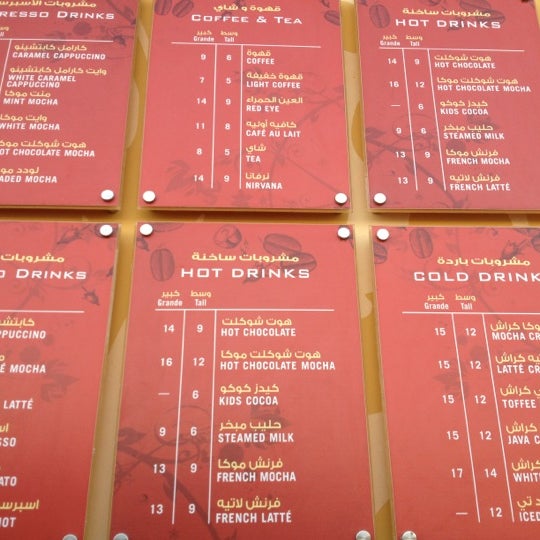 مشروبات الأسبرس
RESSO DRINKS
كارامل كابتشينو
CARAMEL CAPPUCCINO
وايت كارامل كابتشينو
WHITE CARAMEL
CAPPUCCINO
منت موكا
MINT MOCHA
وايت موكا
WHITE MOCHA
هوت شوكلت موكا
HOT CHOCOLATE MOCHA
لودد موكا
ADED MOCHA
قهوة و شاي
COFFEE & TEA
كبير وسط
Grande Tall
قهوة
9 8 COFFEE
قهوة خفيفة
7 5 LIGHT COFFEE
العين الحمراء
14 9 RED EYE
كافيه أوليه
11 8 CAFÉ AU LAIT
شاي
8 5 TEA
نرفانا
14 9 NIRVANA
مشروبات ساخنة
HOT DRINKS
كبير وسط
Grande Tall
هوت شوكلت
14 9 HOT CHOCOLATE
هوت شوكلت موكا
16 12 HOT CHOCOLATE MOCHA
كيدز كوكو
— 6 KIDS COCOA
حليب مبخر
9 6 STEAMED MILK
فرنش موكا
13 9 FRENCH MOCHA
فرنش لاتيه
13 9 FRENCH LATTÉ
مشروبات
O DRINKS
كابتش
PUCCINO
É MOCHA
LATTÉ
ESSO
ATO
اسبرس
HOT
مشروبات ساخنة
HOT DRINKS
كبير وسط
Grande Tall
هوت شوكلت
14 9 HOT CHOCOLATE
هوت شوكلت موكا
16 12 HOT CHOCOLATE MOCHA
كيدز كوكو
— 6 KIDS COCOA
حليب مبخر
9 6 STEAMED MILK
فرنش موكا
13 9 FRENCH MOCHA
فرنش لاتيه
13 9 FRENCH LATTÉ
مشروبات باردة
COLD DRINK
كبير وسط
Grande Tall
وكا كراش
15 12 MOCHA CR
يه كراش
15 12 LATTÉ CR
كراش
15 12 TOFFEE
كراش
15 12 JAVA C
كراش
17 14 WHIT
د تي
15 12 ICED